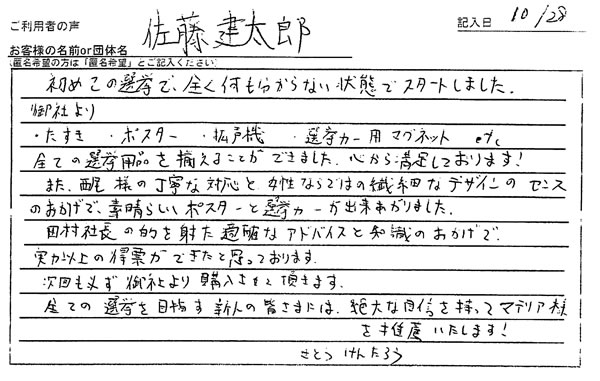 ご利用者の声
佐藤建太郎
記入日 10/28
お客様の名前or団体名
(匿名希望の方は「匿名希望」とご記入ください)
初めての選挙で、全く何も分からない状態でスタートしました。
御社より
・たすき ・ポスター ・拡声機 ・選挙カー用マグネット etc
全ての選挙用品を揃えることができました。心から満足しております!
また、西尾様の丁寧な対応と、女性ならではの繊細なデザインのセンス
のおかげで、素晴らしいポスターと選挙カーが出来あがりました。
田村社長の的を射た適確なアドバイスと知識のおかげで、
実力以上の得票ができたと思っております。
次回も必ず御社より購入させて頂きます。
全ての選挙を目指す新人の皆さまには、絶大な自信を持ってマテリア様
を推薦いたします!
さとう けんたろう